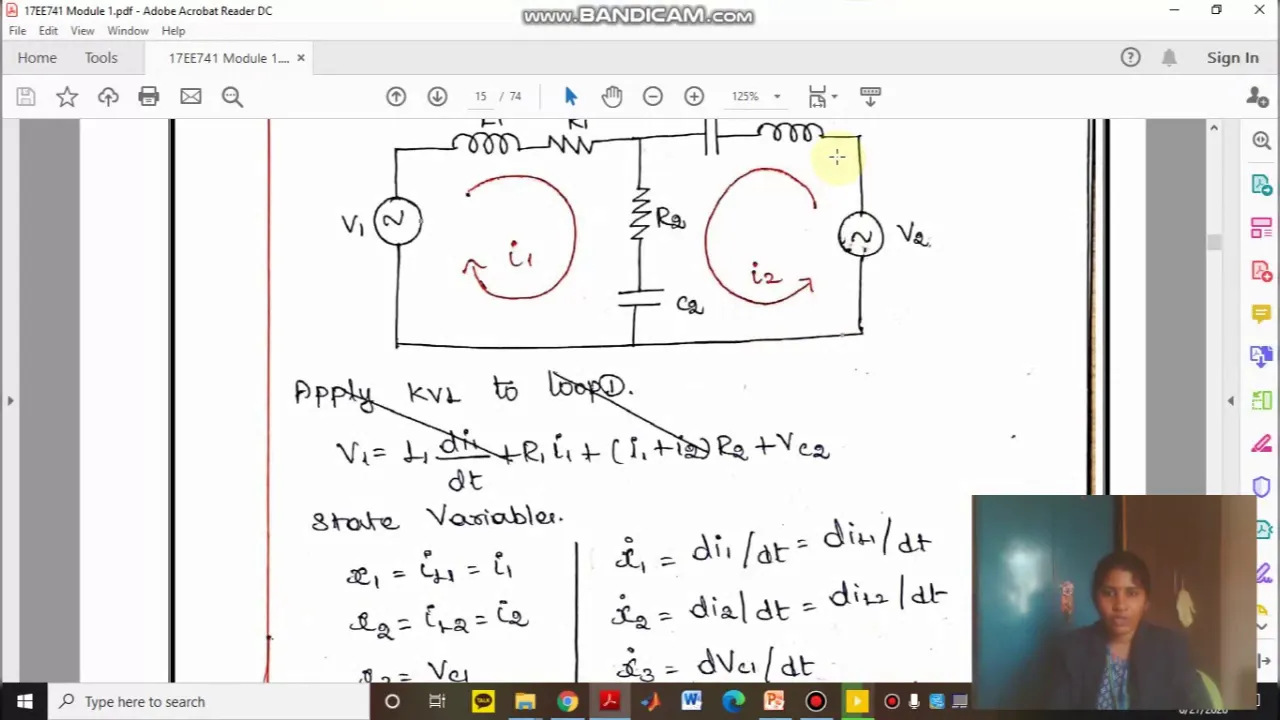 17EE741 Module 1.pdf - Adobe Acrobat Reader DC
www.BANDICAM.com
File Edit View Window Help
Home Tools 17EE741 Module 1.... × Sign In
15 / 74 125%
L1 R1
V1 i1 R2 i2 V2
C2
Apply KVL to loop①.
V1 = L1 di1/dt + R1 i1 + (i1 + i2) R2 + VC2
State Variables.
x1 = iL1 = i1
ẋ1 = di1/dt = diL1/dt
x2 = iL2 = i2
ẋ2 = di2/dt = diL2/dt
x3 = VC1
ẋ3 = dVC1/dt
Type here to search
TALK